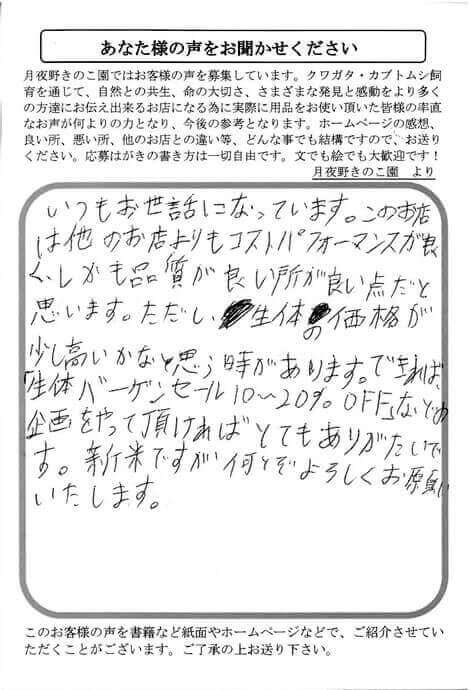 あなた様の声をお聞かせください
月夜野きのこ園ではお客様の声を募集しています。クワガタ・カブトムシ飼
育を通じて、自然との共生、命の大切さ、さまざまな発見と感動をより多く
の方達にお伝え出来るお店になる為に実際に用品をお使い頂いた皆様の率直
なお声が何よりの力となり、今後の参考となります。ホームページの感想、
良い所、悪い所、他のお店との違い等、どんな事でも結構ですので、お送り
ください。応募はがきの書き方は一切自由です。文でも絵でも大歓迎です！
月夜野きのこ園 より
いつもお世話になっています。このお店
は他のお店よりもコストパフォーマンスが良
く、しかも品質が良い所が良い点だと
思います。ただし 生体の価格が
少し高いかなと思う時があります。できれば、
「生体バーゲンセール10〜20% OFF」などの
企画をやって頂ければとてもありがたいで
す。新米ですが何とぞよろしくお願い
いたします。
このお客様の声を書籍など紙面やホームページなどで、ご紹介させてい
ただくことがございます。ご了承の上お送り下さい。